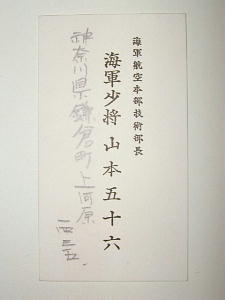 海軍航空本部技術部長
海軍少将 山本五十六
神奈川県鎌倉町上河原
一四三五